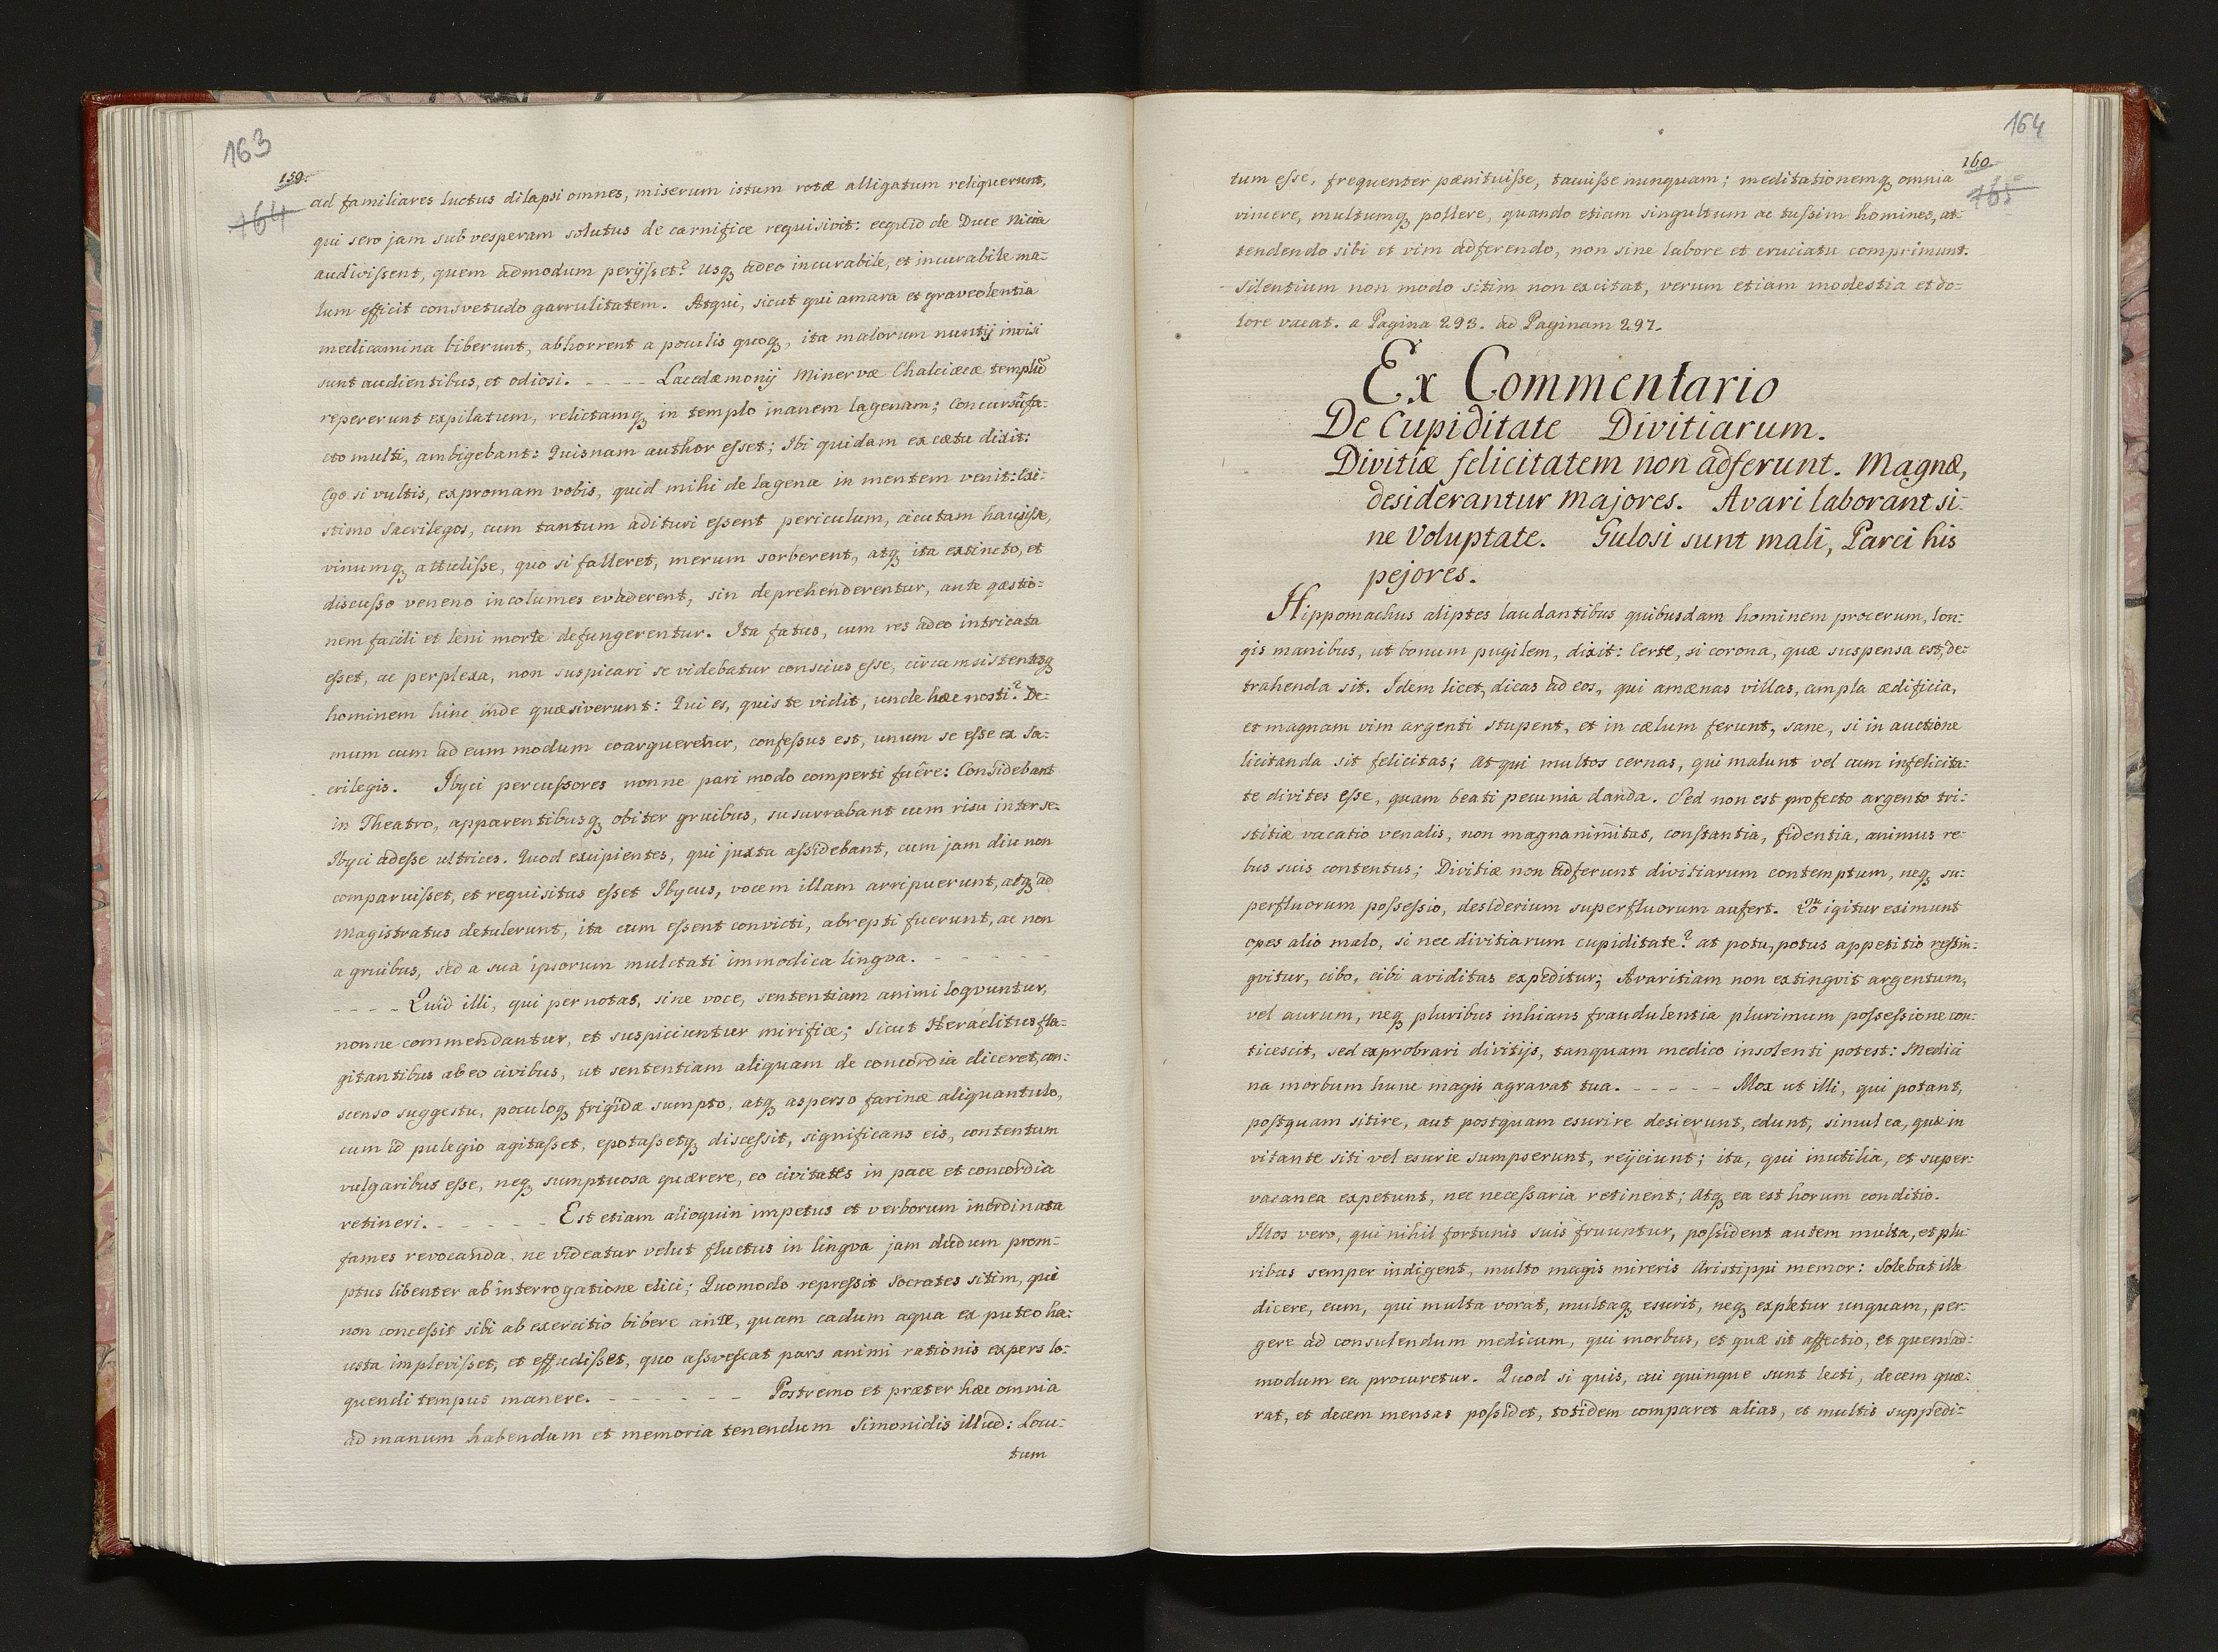 163
159.
164
ad familiares luctus dilapsi omnes, miserum istum rotæ alligatum reliquerunt,
qui sero jam sub vesperam solutus de carnifice requisivit: ecquid de Duce Nicia
audivissent, quem admodum perijsset? usq adeo incurabile, et incurabile ma-
lum efficit consvetudo garrulitatem. Atqui, sicut qui amara et graveolentia
medicamina biberunt, abhorrent a poculis quoq, ita malorum nuntij invisi
sunt audientibus, et odiosi. - - - - Lacedæmonij Minervæ Chalciœcæ templũ
repererunt expilatum, relictamq in templo inanem lagenam; Concursũ fa-
cto multi, ambigebant: Quisnam author esset; Ibi quidam ex cœtu dixit:
Ego si vultis, expromam vobis, quid mihi de lagena in mentem venit: Exi-
stimo Sacrilegos, cum tantum adituri essent periculum, cicutam hausisse,
vinumq attulisse, quo si falleret, merum sorberent, atq ita extincto, et
discusso veneno incolumes evaderent, sin deprehenderentur, ante qæstio-
nem facili et leni morte defungerentur. Ita fatus, cum res adeo intricata
esset, ac perplexa, non suspicari se videbatur conscius esse, circumsistentesq
hominem hinc inde quæsiverunt: Qui es, quis te vidit, unde hæc nosti? De-
mum cum ad eum modum coargueretur, confessus est, unum se esse ex Sa-
crilegis. Ibyci percussores nonne pari modo comperti fuêre: Considebant
in Theatro, apparentibusq obiter gruibus, susurrabant cum risu inter se-
Ibyci adesse ultrices. Quod excipientes, qui juxta assidebant, cum jam diu non
comparuisset, et requisitus esset Ibycus, vocem illam arripuerunt, atq ad
Magistratus detulerunt, ita cum essent convicti, abrepti fuerunt, ac non
a gruibus, sed a sua ipsorum mulctati immodica lingva. - - - - -
- - - - Quid illi, qui per notas, sine voce, sententiam animi loqvuntur,
nonne commendantur, et suspiciuntur mirifice; Sicut Heraclitus fla-
gitantibus ab eo civibus, ut sententiam aliquam de concordia diceret, con-
scenso suggestu, poculoq frigidæ sumpto, atq asperso farinæ aliquantulo,
cum id pulegio agitasset, epotassetq discessit, significans eis, contentum
vulgaribus esse, neq sumptuosa quærere, eo civitates in pace et concordia
retineri. - - - - - Est etiam alioquin impetus et verborum inordinata
fames revocanda, ne videatur velut fluctus in lingva jam dudum prom-
ptus libenter ab interrogatione elici; Quomodo repressit Socrates sitim, qui
non concessit sibi ab exercitio bibere ante, quam cadum aqua ex puteo ha-
usta implevisset, et effudisset, quo assvescat pars animi rationis expers lo-
quendi tempus manere. - - - - - - Postremo et præter hæc omnia
ad manum habendum et memoria tenendum Simonidis illud: Locu-
tum
164
160.
165
tum esse, frequenter pænituisse, tacuisse nunquam; meditationemq omnia
vincere, multumq pollere, quando etiam singultum ac tussim homines, at-
tendendo sibi et vim adferendo, non sine labore et cruciatu comprimunt.
Silentium non modo sitim non excitat, verum etiam modestia et do-
lore vacat. a Pagina 293. ad Paginam 297.
Ex Commentario
De Cupiditate Divitiarum.
Divitiæ felicitatem non adferunt. Magnæ,
desiderantur majores. Avari laborant si-
ne Voluptate. Gulosi sunt mali, Parci his
pejores.
Hippomachus aliptes laudantibus quibusdam hominem procerum, lon-
gis manibus, ut bonum pugilem, dixit: Certe, si corona, quæ suspensa est, de-
trahenda sit. Idem licet, dicas ad eos, qui amænas villas, ampla ædificia,
et magnam vim argenti stupent, et in cælum ferunt, sane, si in auctione
licitanda sit felicitas; at qui multos cernas, qui malunt vel cum infelicita-
te divites esse, quam beati pecunia danda. Sed non est profecto argento tri-
stitiæ vacatio venalis, non magnanimitas, constantia, fidentia, animus re-
bus suis contentus; Divitiæ non adferunt divitiarum contemptum, neq su-
perfluorum possessio, desiderium superfluorum aufert. Quo igitur eximunt
opes alio malo, si nec divitiarum cupiditate? at potu, potus appetitio restin-
gvitur, cibo, cibi aviditas expeditur; Avaritiam non extingvit argentum,
vel aurum, neq pluribus inhians fraudulentia plurimum possessione con-
ticescit, sed exprobrari divitijs, tanquam medico insolenti potest: Medici
na morbum hunc magis agravat tua. - - - - - Mox ut illi, qui potant,
postquam sitire, aut postquam esurire desierunt, edunt, simul ea, quæ in
vitante siti vel esurie sumpserunt, reijciunt; ita, qui inutilia, et super-
vacanea expetunt, nec necessaria retinent; Atq ea est horum conditio.
Illos vero, qui nihil fortunis suis fruuntur, possident autem multa, et plu-
ribus semper indigent, multo magis mireris Aristippi memor: Solebat ille
dicere, eum, qui multa vorat, multaq esurit, neq expletur unquam, per-
gere ad consulendum medicum, qui morbus, et quæ sit affectio, et quemad-
modum ea procuretur. Quod si quis, cui quinque sunt lecti, decem quæ-
rat, et decem mensas possidet, totidem comparet alias, et multis suppedi-